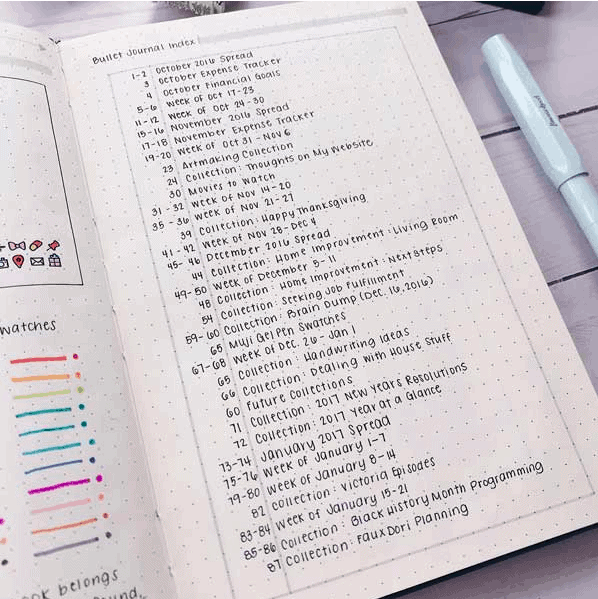 watches
ok belongs
ound,
Bullet Journal Index
1-2 October 2016 Spread
3 October Expense Tracker
4 October Financial Goals
5-6 Week of Oct 17-23
11-12 Week of Oct 24-30
15-16 November 2016 Spread
17-18 November Expense Tracker
19-20 Week of Oct 31-Nov 6
23 Artmaking Collection
24 Collection: Thoughts on My Website
30 Movies to Watch
31-32 Week of Nov 14-20
35-36 Week of Nov 21-27
39 Collection: Happy Thanksgiving
41-42 Week of Nov 28-Dec 4
45-46 December 2016 Spread
44 Collection: Home Improvement: Living Room
49-50 Week of December 5-11
48 Collection: Home Improvement: Next Steps
54 Collection: Seeking Job Fulfillment
59-60 Collection: Brain Dump (Dec. 16, 2016)
65 Muji Gel Pen Swatches
67-68 Week of Dec. 26-Jan 1
65 Collection: Handwriting Ideas
66 Collection: Dealing with House Stuff
60 Future Collections
71 Collection: 2017 New Years Resolutions
72 Collection: 2017 Year at a Glance
73-74 January 2017 Spread
75-76 Week of January 1-7
79-80 Week of January 8-14
82 Collection: Victoria Episodes
83-84 Week of January 15-21
85-86 Collection: Black History Month Programming
87 Collection: Faux Dori Planning